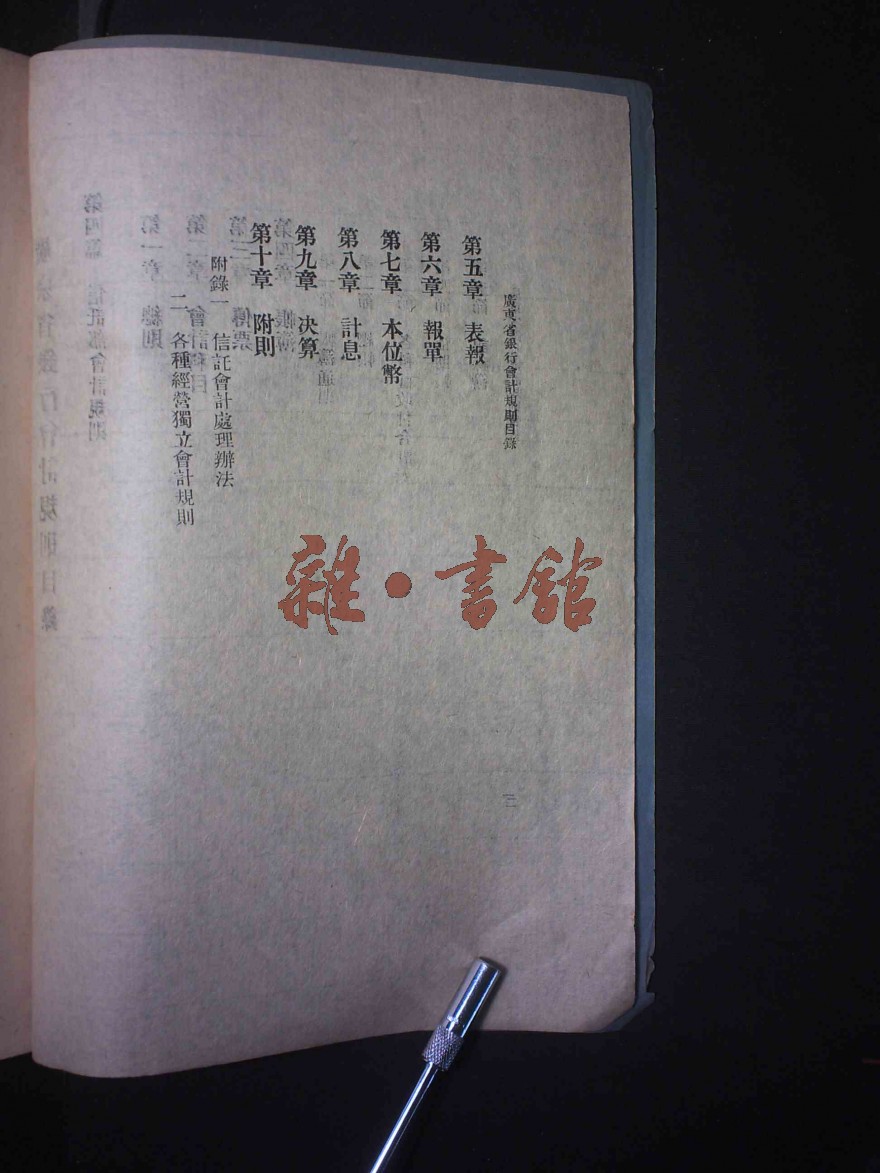 廣東省銀行會計規則目錄
第五章 表報
第六章 報單
第七章 本位幣
第八章 計息
第九章 决算
第十章 附則
附錄一 信託會計處理辦法
二 各種經營獨立會計規則
雜·書館